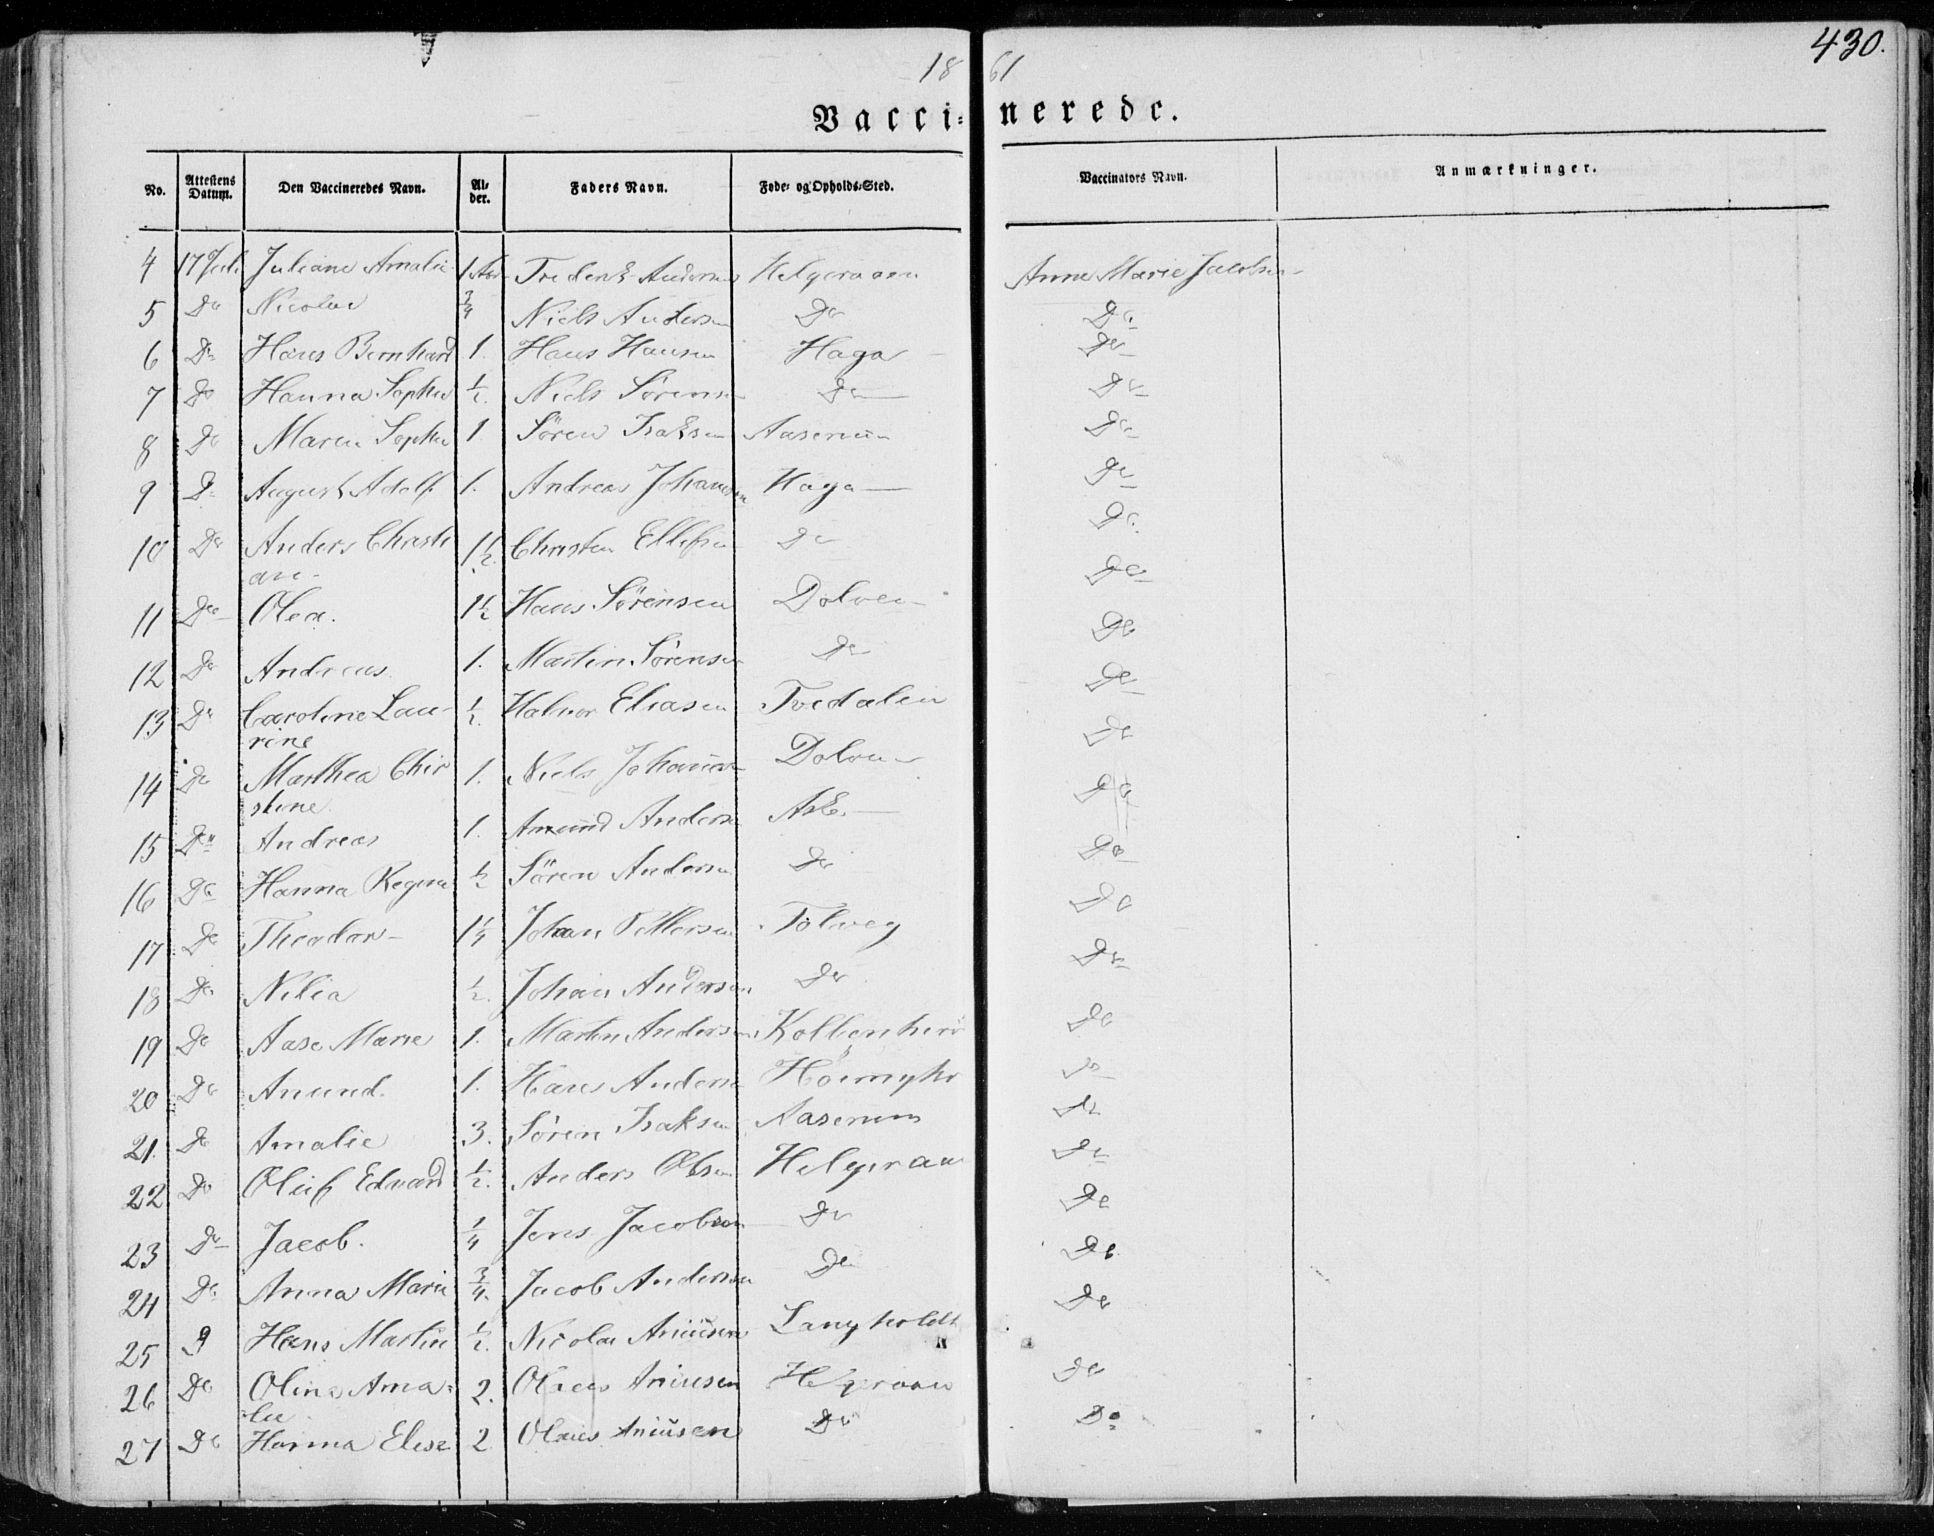 430.
18 61
Vacci= nerede.
No. Attestens Datum. Den Vaccineredes Navn. Al= der. Faders Navn. Føde= og Opholds=Sted. Vaccinators Navn. Anmærkninger.
4 17 Juli Juliane Amalie 1 Aar Frederik Andersen Helgeraaen Anne Marie Jacobsen
5 Do Nicolai 3/4 Niels Andersen Do Do
6 Do Hans Bernhard 1. Hans Hansen Haga Do
7 Do Hanna Sophie 1/2. Niels Sörensen Do Do
8 Do Maren Sophie 1. Sören Isaksen Aaserum Do
9 Do August Adolf 1. Andreas Johansen Haga Do
10 Do Anders Christi 1 1/2. Christen Ellefsen Do Do
an
11 Do Olea. 1 1/2 Hans Sörensen Dolven Do
12 Do Andreas 1. Martin Sörensen Do Do
13 Do Caroline Lau- 1/2. Halvor Eliasen Tvedalen Do
rine
14 Do Marthea Chir 1. Niels Johansen Dolven Do
stine
15 Do Andreas 1. Amund Andersen Ask Do
16 Do Hanna Regina 1/2 Sören Andersen Do Do
17 Do Theodor 1 1/4 Johan Pettersen Tolveg Do
18 Do Nilia 1/2. Johan Andersen Do Do
19 Do Aase Marie 1. Martin Andersen Do
20 Do Anund. 1. Hans Andersen Do
21. Do Amalie 3. Sören Isaksen Aaserum Do
22 Do Oluf Edvard 1/2. Anders Olsen Helgeraae Do
23 Do Jacob. 1/4 Jens Jacobsen Do Do
24 Do Anna Marie 3/4. Jacob Andersen Do Do
25 D Hans Martin 1/2. Nicolai Aniusen Langholdt Do
26 Do Oline Ama= 2. Olaus Aniusen Helgeraae Do
lie
27 Do Hanna Elise 2 Olaus Aniusen Do Do